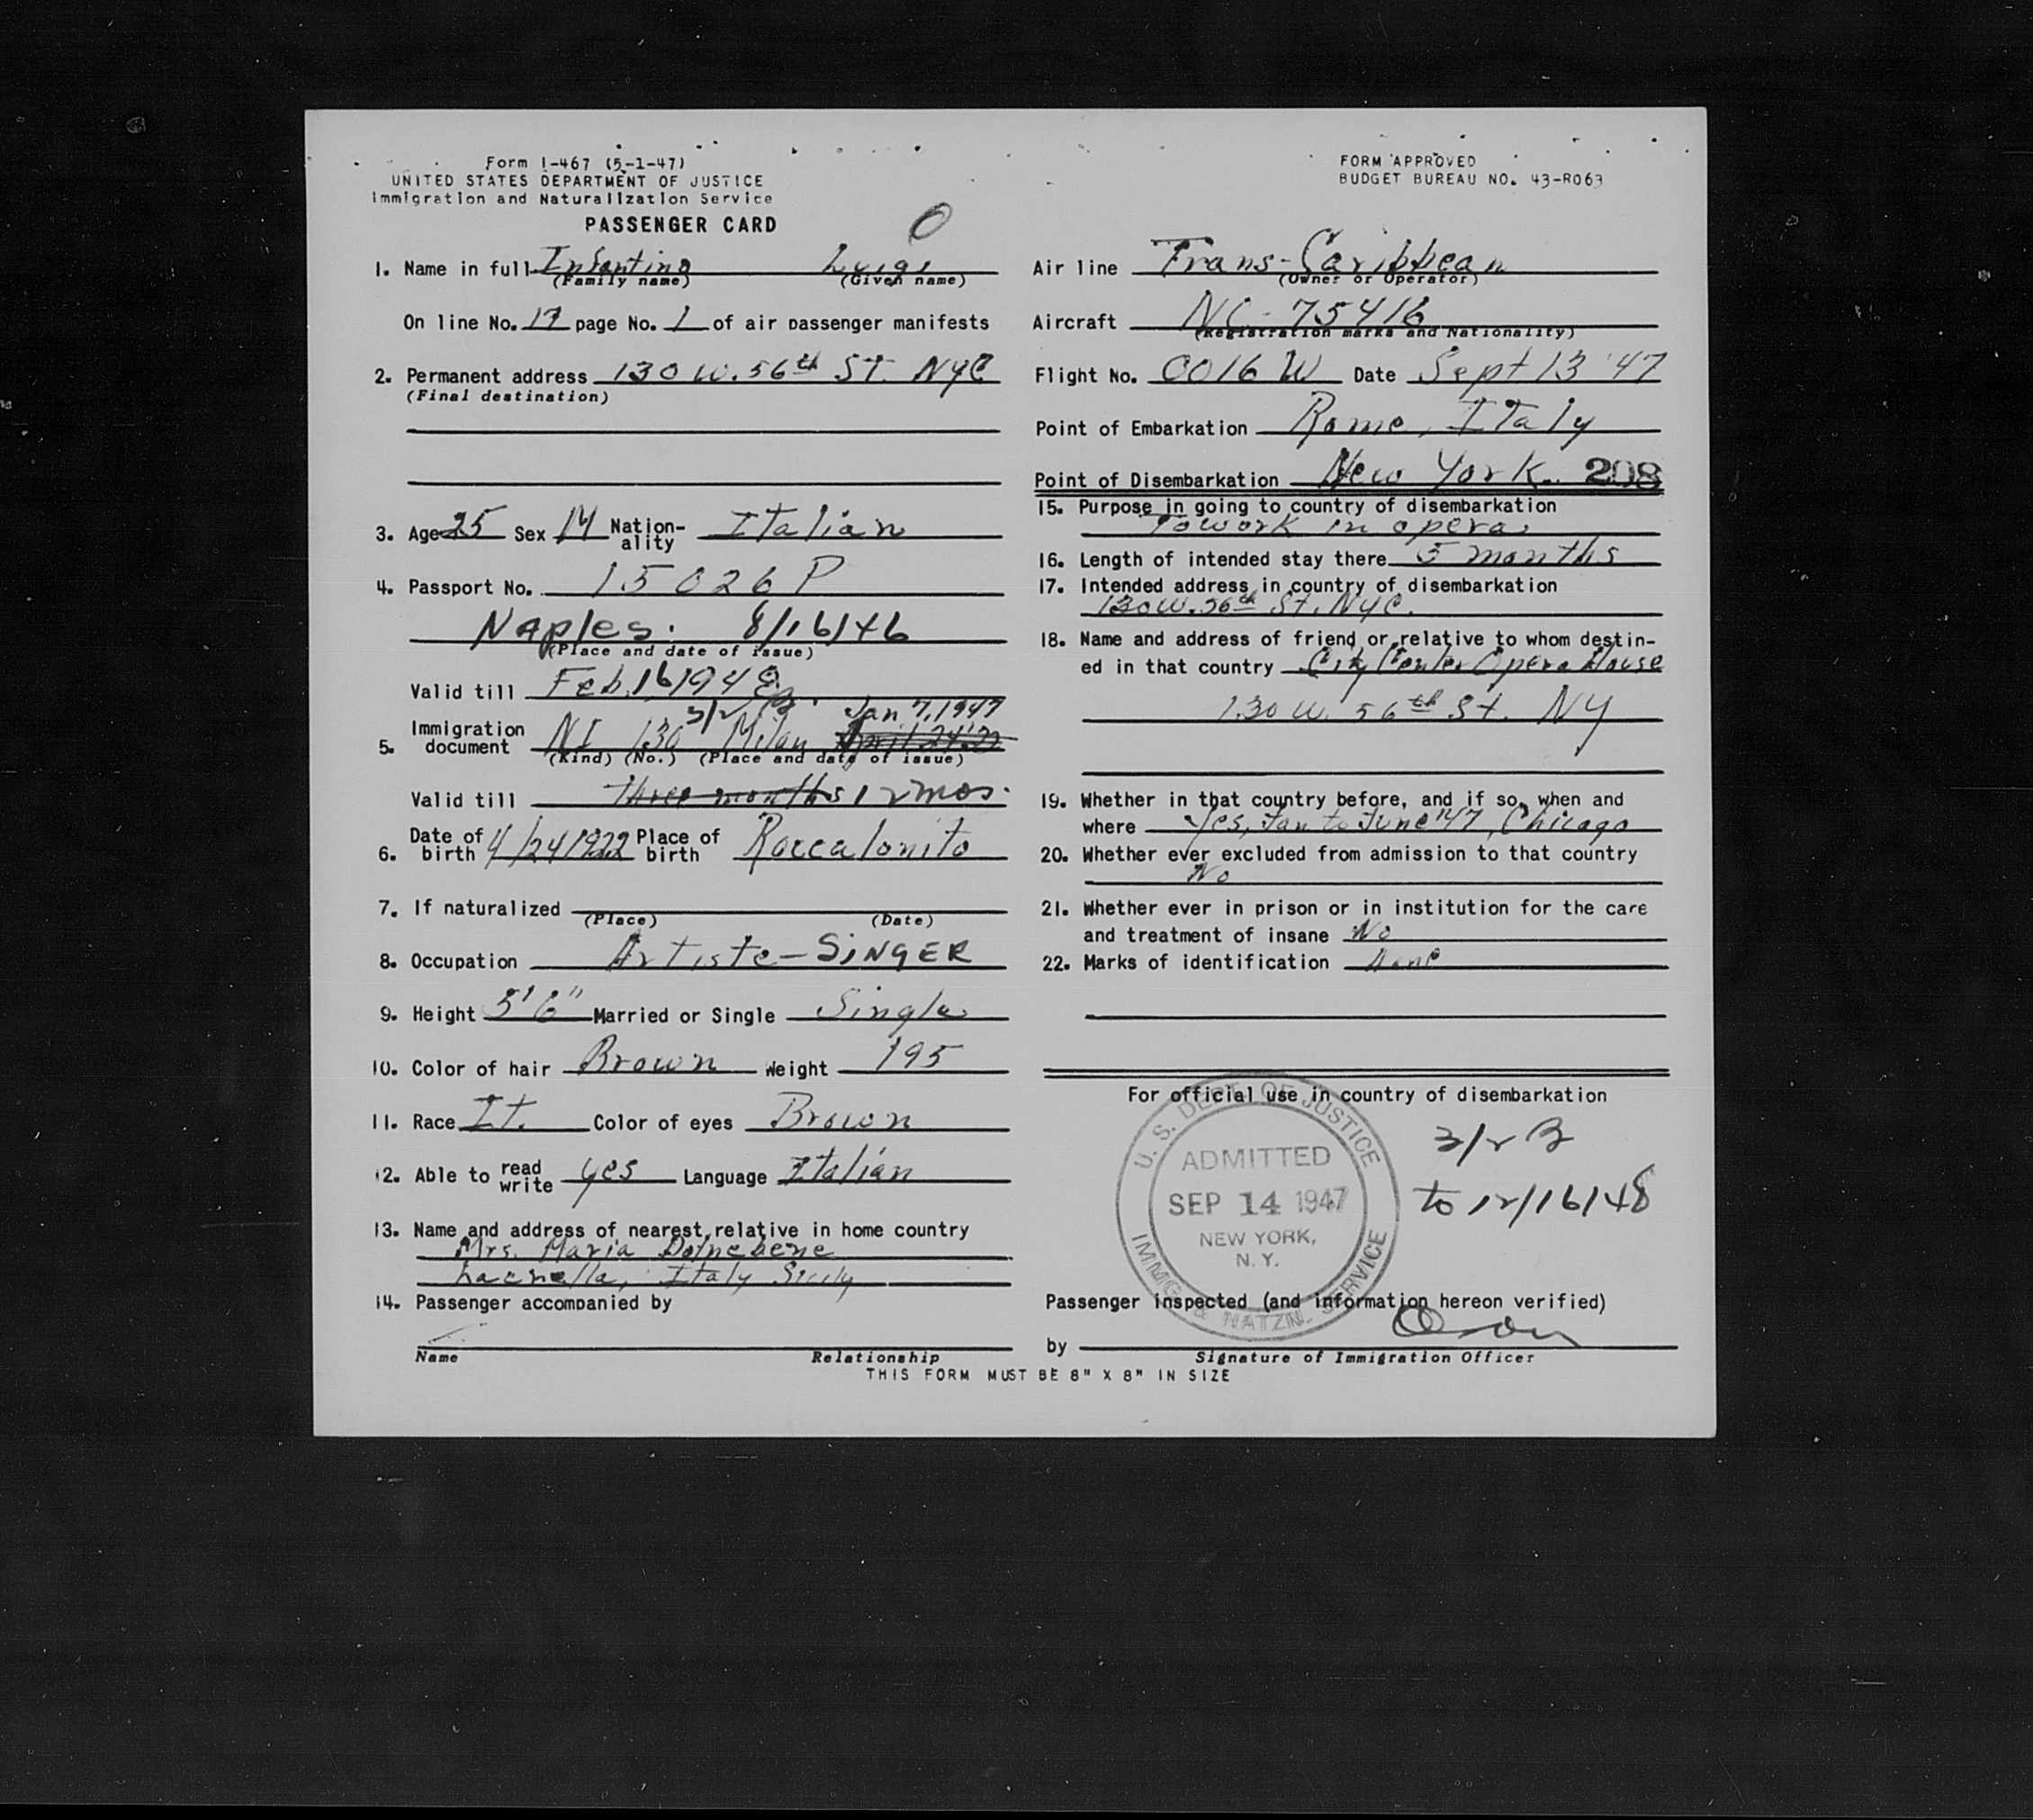 Form I-467 (5-1-47)
UNITED STATES DEPARTMENT OF JUSTICE
Immigration and Naturalization Service
PASSENGER CARD
FORM APPROVED
BUDGET BUREAU NO. 43-R063
0
1. Name in full Infantino Luigi
(Family name) (Given name)
On line No. 17 page No. 1 of air passenger manifests
2. Permanent address 130 W. 56th St. NYC
(Final destination)
3. Age 25 Sex M Nation-ality Italian
4. Passport No. 15026 P
Naples. 8/16/46
(Place and date of issue)
Valid till Feb. 16 1948
3/2 Jan 7, 1947
5. Immigration document NI 130 Milan
(Kind) (No.) (Place and date of issue)
Valid till Three months 12 mos.
6. Date of birth 4/24/1922 Place of birth Roccalonito
7. If naturalized
(Place) (Date)
8. Occupation Artiste - SINGER
9. Height 5'6" Married or Single Single
10. Color of hair Brown Weight 195
11. Race It. Color of eyes Brown
12. Able to read write yes Language Italian
13. Name and address of nearest relative in home country
Mrs. Maria
Italy Sicily
14. Passenger accompanied by
Name Relationship
Air line Trans-Caribbean
(Owner or Operator)
Aircraft NC-75416
(Registration marks and Nationality)
Flight No. 0016 W Date Sept 13 '47
Point of Embarkation Rome, Italy
Point of Disembarkation New York. 208
15. Purpose in going to country of disembarkation
To work in opera
16. Length of intended stay there 5 months
17. Intended address in country of disembarkation
130 W. 56th St. NYC.
18. Name and address of friend or relative to whom destin-
ed in that country City Center Opera House
130 W. 56th St. NY
19. Whether in that country before, and if so, when and
where Yes, Jan to June '47, Chicago
20. Whether ever excluded from admission to that country
No
21. Whether ever in prison or in institution for the care
and treatment of insane No
22. Marks of identification None
For official use in country of disembarkation
U. S. DEPT. OF JUSTICE
ADMITTED
SEP 14 1947
NEW YORK,
N. Y.
IMMIG. & NATZN. SERVICE
3/2 B
to 12/16/48
Passenger inspected (and information hereon verified)
by
Signature of Immigration Officer
THIS FORM MUST BE 8" X 8" IN SIZE